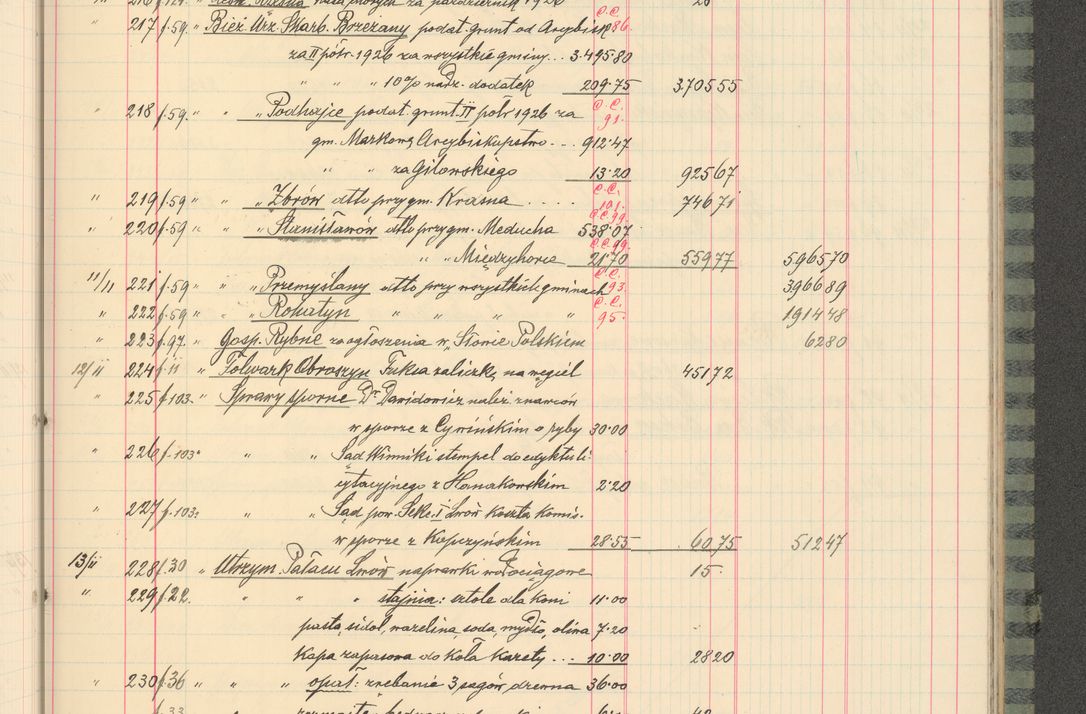 217 f.59 " Bież. Urz. Skarb. Brzeżany podat. grunt od Arcybisk C.C. 86.
za II półr. 1926 za wszystkie gminy... 3.495.80
" " " 10% nadz. dodatek 209.75 370555
" 218 f.59. " " " Podhajce podat. grunt. II półr 1926 za C.C. 91.
gm. Markowa Arcybiskupstwo... 912.47
" " za Gilowskiego 13.20 92567
" 219 f.59 " " " Zborów dtto przy gm. Krasna .... C.C. 101. 74671
" 220 f.59 " " " Stanisławów dtto przy gm. Meducha C.C. 99. 538.07
" " Międzyhorce C.C. 99. 21.70 55977 596570
11/11 221 f.59 " " " Przemyślany dtto przy wszystkich gminach C.C. 93. 396689
" 222 f.59 " " " Rohatyn " " " " C.C. 95. 191448
" 223 f.97. " Gosp. Rybne za ogłoszenia w "Słowie Polskiem 6280
12/11 224 f.11 " Folwark Obroszyn Fuksa zaliczkę na węgiel 45172
" 225 f.103. " Sprawy sporne Dr Dawidowicz należ. znawców
w sporze z Cywińskim o ryby 30.00
" 226 f.103 " " " Sąd Winniki stempel do edyktu li-
cytacyjnego z Hanakowskim 2.20
" 227 f.103 " " " Sąd pow. Sekc. I Lwów koszta komis.
w sporze z Kopczyńskim 28.55 60.75 51247
13/11 228 f.30 " Utrzym. Pałacu Lwów naprawki wodociągowe 15.
" 229 f.22. " " " stajnia: sztole dla koni 11.00
pasta, sidol, wazelina, soda, mydło, oliwa 7.20
kapa zapasowa do koła karety... 10.00 2820
" 230 f.36 " " " opał: zrebanie 3 sągów drzewa 36.00